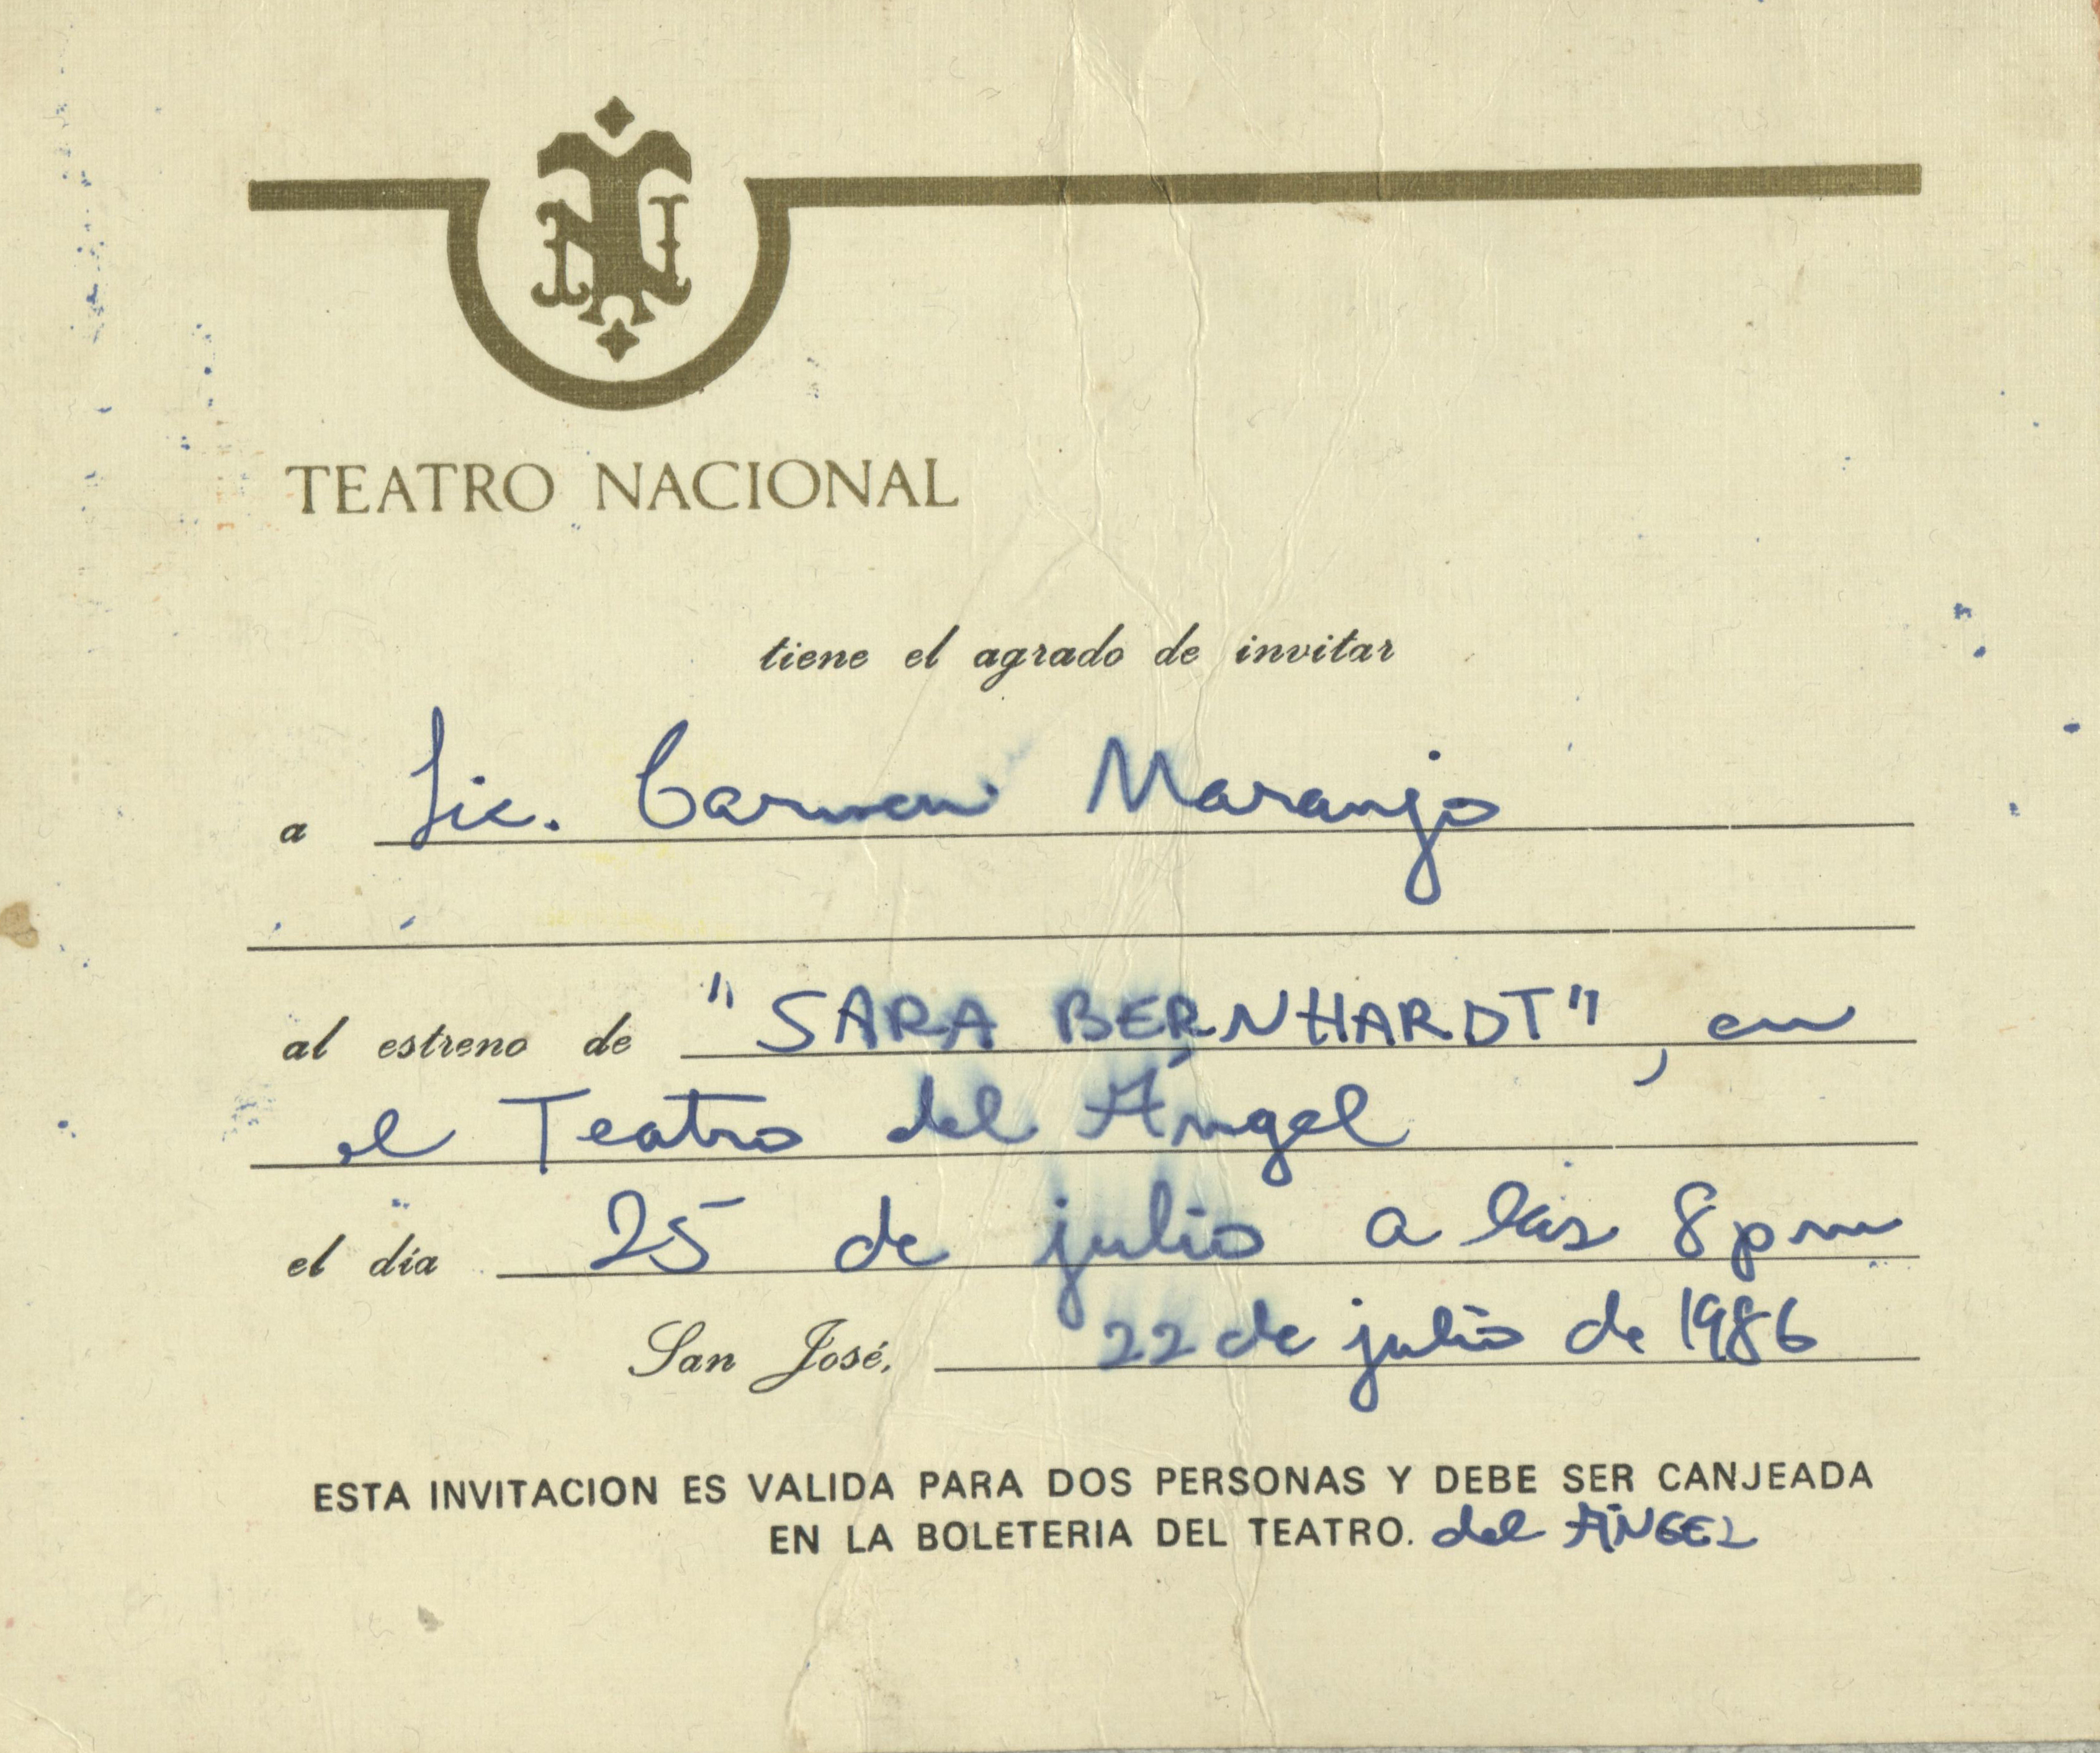 TEATRO NACIONAL
tiene el agrado de invitar
a Lic. Carmen Naranjo
al estreno de "SARA BERNHARDT", en
el Teatro del Ángel
el día 25 de julio a las 8 pm
San José, 22 de julio de 1986
ESTA INVITACION ES VALIDA PARA DOS PERSONAS Y DEBE SER CANJEADA
EN LA BOLETERIA DEL TEATRO. del ÁNGEL